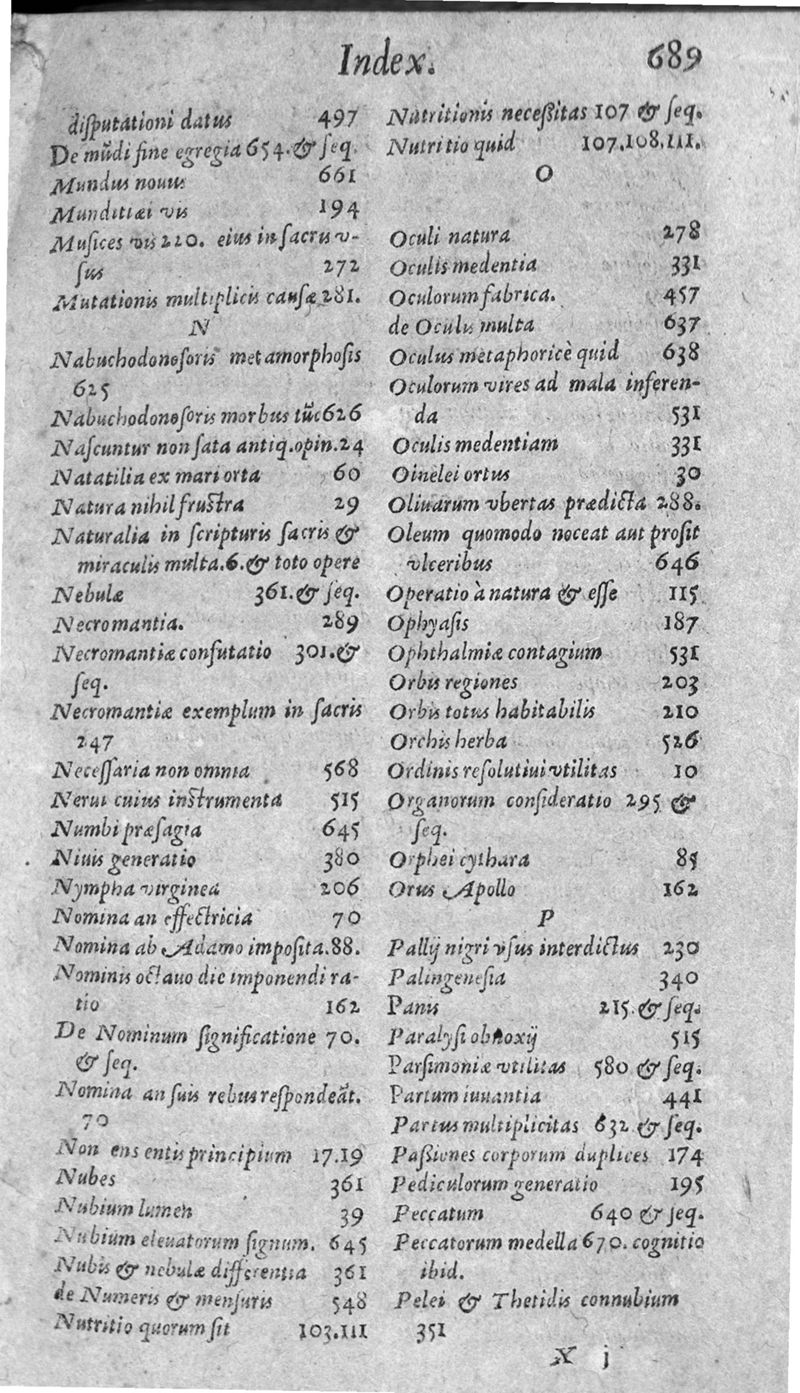 Index. 689
diſputationi datus 497
De mũdi fine egregia 654. & ſeq.
Mundus nouus 661
Munditiæi vis 194
Muſices vis 220. eius in ſacris v-
ſus 272
Mutationis multiplicis cauſæ 281.
N
Nabuchodonoſoris metamorphoſis
625
Nabuchodonoſoris morbus tũc 626
Naſcuntur non ſata antiq. opin. 24
Natatilia ex mari orta 60
Natura nihil fruſtra 29
Naturalia in ſcripturis ſacris &
miraculis multa. 6. & toto opere
Nebulæ 361. & ſeq.
Necromantia. 289
Necromantiæ confutatio 301. &
ſeq.
Necromantiæ exemplum in ſacris
247
Neceſſaria non omnia 568
Nerui cuius inſtrumenta 515
Numbi præſagia 645
Niuis generatio 380
Nympha virginea 206
Nomina an effectricia 70
Nomina ab Adamo impoſita. 88.
Nominis octauo die imponendi ra-
tio 162
De Nominum ſignificatione 70.
& ſeq.
Nomina an ſuis rebus reſpondeãt.
70
Non ens entis principium 17.19
Nubes 361
Nubium lumen 39
Nubium eleuatorum ſignum. 645
Nubis & nebulæ differentia 361
de Numeris & menſuris 548
Nutritio quorum ſit 103.111
Nutritionis neceßitas 107 & ſeq.
Nutritio quid 107.108.111.
O
Oculi natura 278
Oculis medentia 331
Oculorum fabrica. 457
de Oculis multa 637
Oculus metaphoricè quid 638
Oculorum vires ad mala inferen-
da 531
Oculis medentiam 331
Oinelei ortus 30
Oliuarum vbertas prædicta 288.
Oleum quomodo noceat aut profit
vlceribus 646
Operatio à natura & eſſe 115
Ophyaſis 187
Ophthalmiæ contagium 531
Orbis regiones 203
Orbis totus habitabilis 210
Orchis herba 526
Ordinis reſolutiui vtilitas 10
Organorum conſideratio 295 &
ſeq.
Orphei cythara 85
Orus Apollo 162
P
Pallij nigri vſus interdictus 230
Palingeneſia 340
Panis 215. & ſeq.
Paralyſi obnoxij 515
Parſimoniæ vtilitas 580 & ſeq.
Partum iuuantia 441
Partus multiplicitas 632 & ſeq.
Paßiones corporum duplices 174
Pediculorum generatio 195
Peccatum 640 & ſeq.
Peccatorum medella 670. cognitio
ibid.
Pelei & Thetidis connubium
351
X j